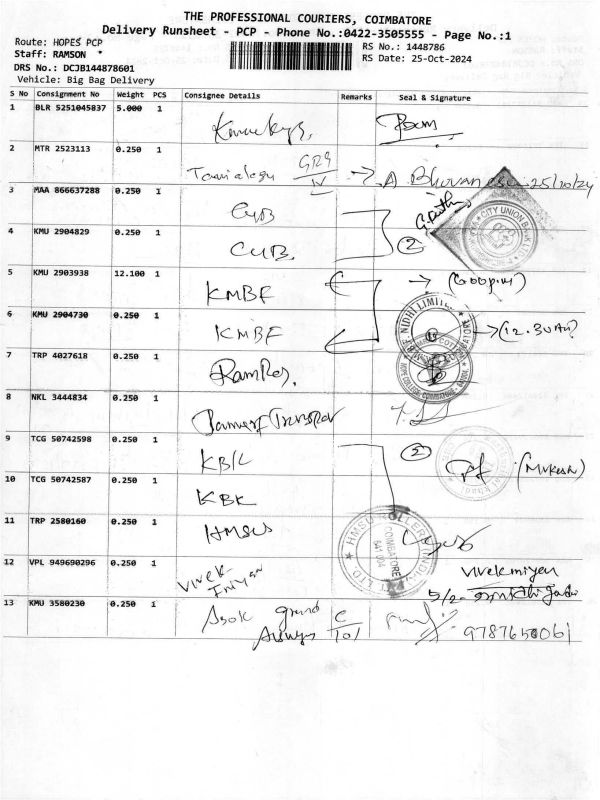 THE PROFESSIONAL COURIERS, COIMBATORE
Delivery Runsheet - PCP - Phone No.:0422-3505555 - Page No.:1
Route: HOPES PCP
Staff: RAMSON *
DRS No.: DCJB144878601
Vehicle: Big Bag Delivery
RS No.: 1448786
RS Date: 25-Oct-2024
S No Consignment No Weight PCS Consignee Details Remarks Seal & Signature
1 BLR 5251045837 5.000 1
2 MTR 2523113 0.250 1 A Bhuvanes 25/10/24
3 MAA 866637288 0.250 1 CUB
CITY UNION BANK LTD
4 KMU 2904829 0.250 1 CUB. 2
5 KMU 2903938 12.100 1 KMBF
NIDHI LIMITED
6 KMU 2904730 0.250 1 KMBF (12.30AM)
7 TRP 4027618 0.250 1
8 NKL 3444834 0.250 1 Transpor
9 TCG 50742598 0.250 1 KBK 2
(Mukesh)
10 TCG 50742587 0.250 1 KBK
11 TRP 2580160 0.250 1 HMSUS
HMSU ROLLER INDIA PVT LTD.
COIMBATORE
641 004
12 VPL 949690296 0.250 1 Vivek
Iniyan
Vivekniyan
13 KMU 3580230 0.250 1 Asok grand
C
101
9787650061